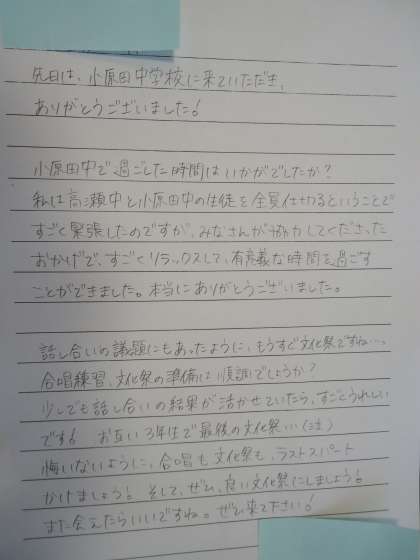 先日は、小原田中学校に来ていただき、
ありがとうございました!
小原田中で過ごした時間はいかがでしたか?
私は高瀬中と小原田中の生徒を全員仕切るということで
すごく緊張したのですが、みなさんが協力してくださった
おかげで、すごくリラックスして、有意義な時間を過ごす
ことができました。本当にありがとうございました。
話し合いの議題にもあったように、もうすぐ文化祭ですね…。
合唱練習、文化祭の準備は順調でしょうか?
少しでも話し合いの結果が活かせていたら、すごくうれしい
です! お互い3年生で最後の文化祭…(泣)
悔いないように、合唱も文化祭も、ラストスパート
かけましょう! そして、ぜひ、良い文化祭にしましょう!
また会えたらいいですね。ぜひ来て下さい!